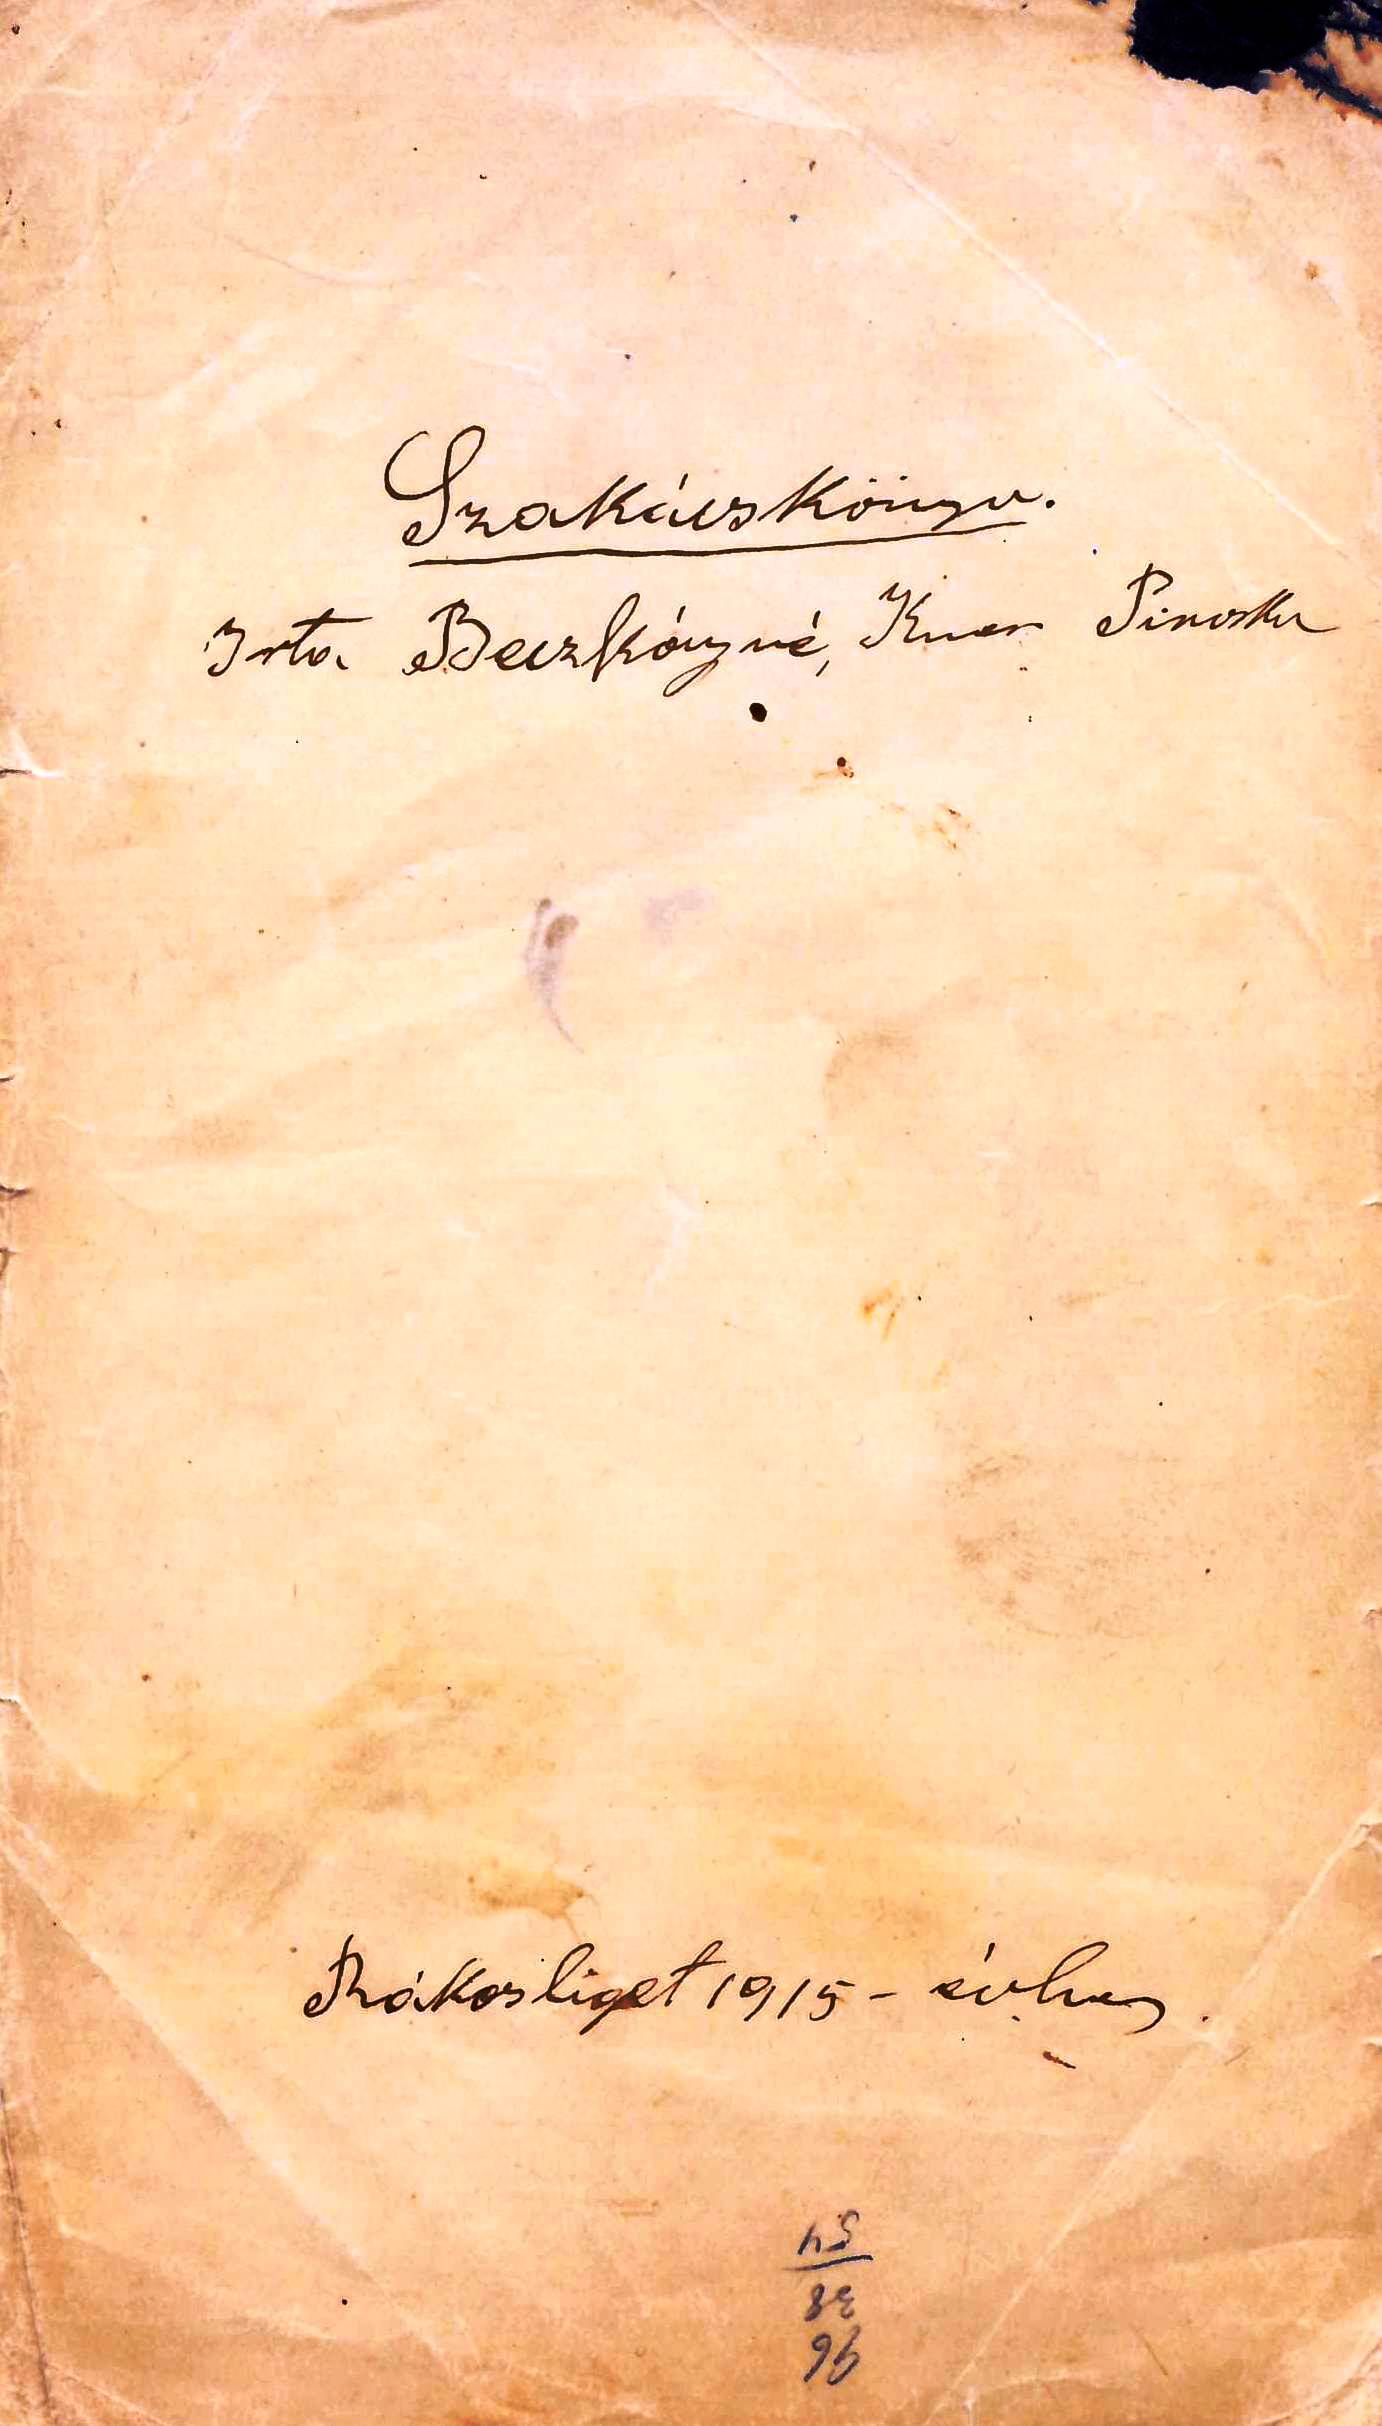 Szakácskönyv.
Irta Beczkóyné, Piroska
Rákosliget 1915 - évben.
38
54